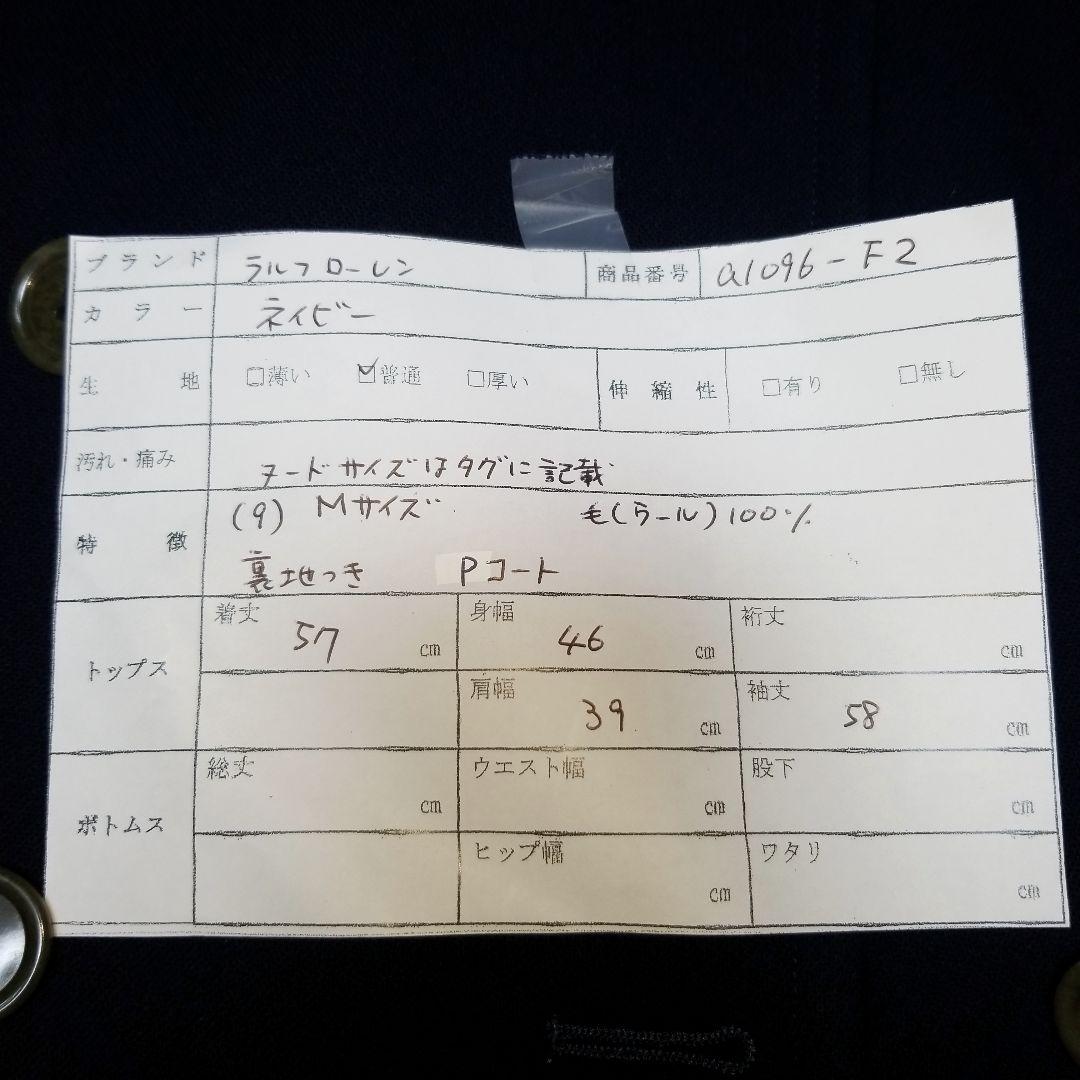 ブランド ラルフローレン 商品番号 a1096-F2
カラー ネイビー
生地 □薄い ☑普通 □厚い 伸縮性 □有り □無し
汚れ・痛み ヌードサイズはタグに記載
特徴 (9) Mサイズ 毛(ラール)100%
裏地つき Pコート
トップス 着丈 57 cm 身幅 46 cm 裄丈 cm
肩幅 39 cm 袖丈 58 cm
ボトムス 総丈 cm ウエスト幅 cm 股下 cm
ヒップ幅 cm ワタリ cm